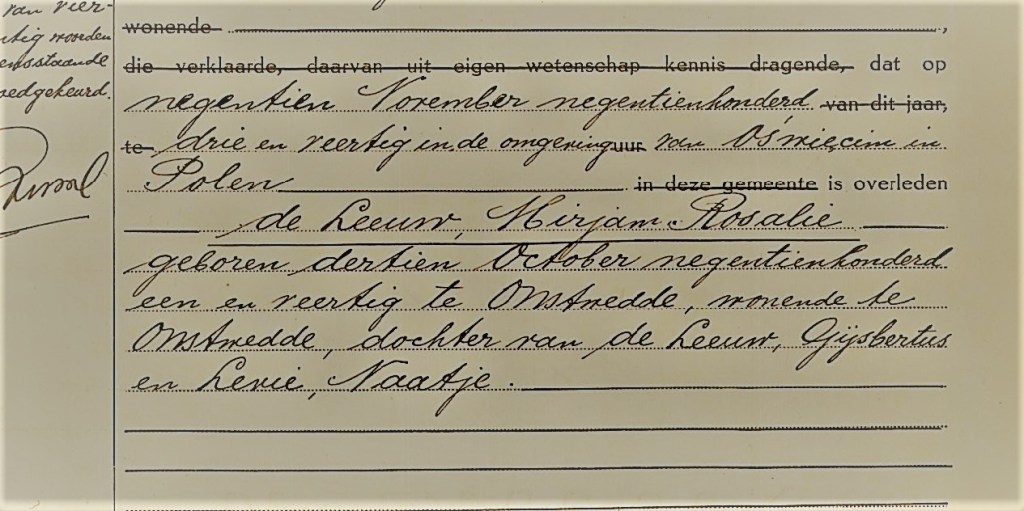 van vier-
tig woorden
nevenstaande
goedgekeurd.
wonende ,
die verklaarde, daarvan uit eigen wetenschap kennis dragende, dat op
negentien November negentienhonderd van dit jaar,
te drie en veertig in de omgeving uur van Oświęcim in
Polen in deze gemeente is overleden
de Leeuw, Mirjam Rosalie
geboren dertien October negentienhonderd
een en veertig te Onstwedde, wonende te
Onstwedde, dochter van de Leeuw, Gijsbertus
en Levie, Naatje.